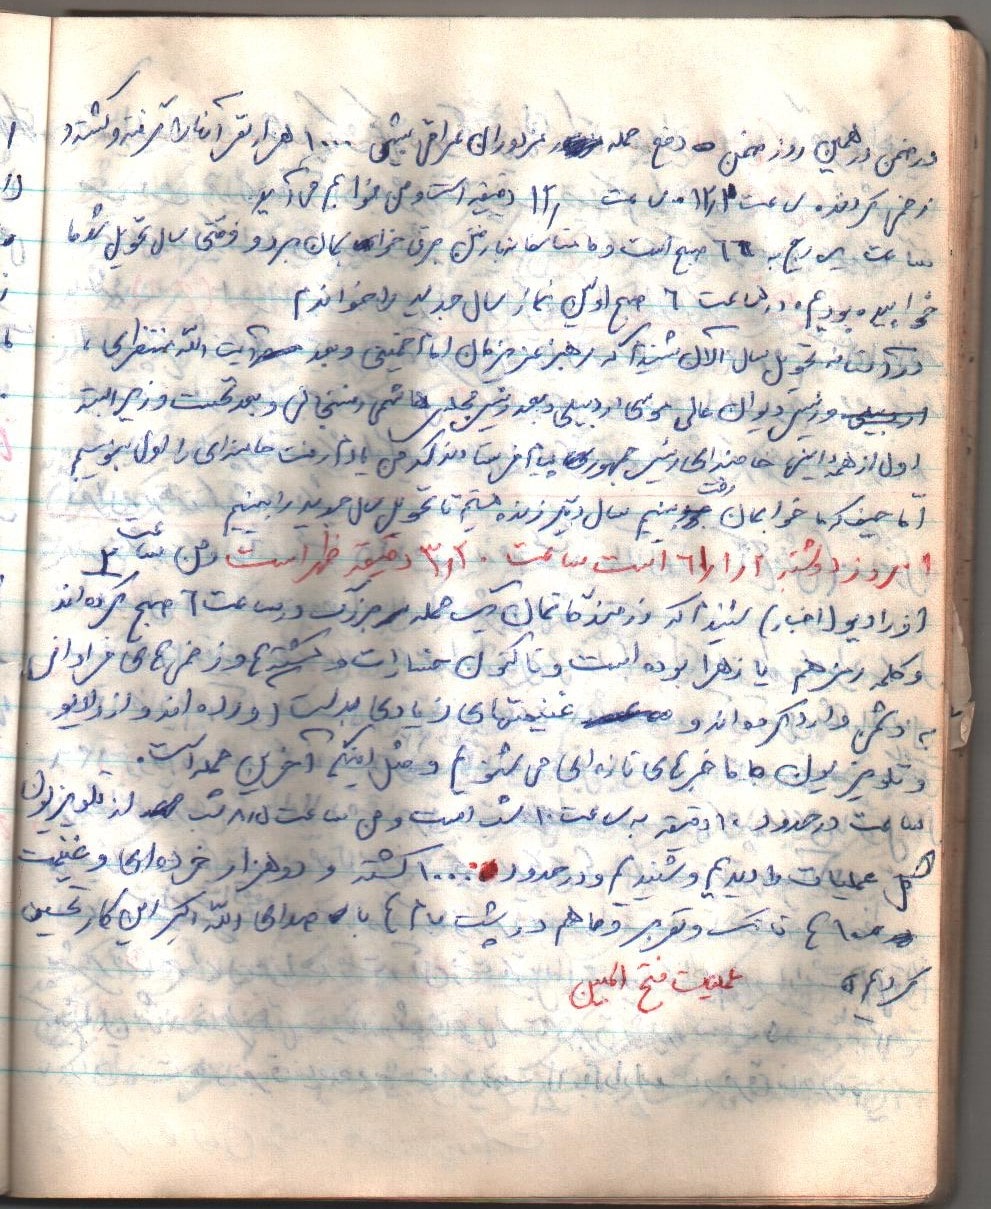 در ضمن در همین روز ضمن دفع حمله مزدوران عراقی بیش ۱۰۰۰ هزار نفر آنها را گرفته و کشته و
زخمی کردند. ساعت ۱۲٫۳۰ ساعت ۱۲٫ دقیقه است و من خوابم می‌آید
ساعت یک ربع به ۶ صبح است و ما متاسفانه خوابمان برد و وقتی سال تحویل شد ما
خوابیده بودیم. در ساعت ۶ صبح اولین نماز سال جدید را خواندم
در آستانه تحویل سال الآن شنیدم که رهبر عزیزمان امام خمینی و بعد آیت الله منتظری،
و رئیس دیوان عالی موسوی اردبیلی و بعد رئیس مجلس هاشمی رفسنجانی و بعد نخست وزیر البته
اول از همه اینها خامنه‌ای رئیس جمهوری پیام فرستادند که من یادم رفت خامنه‌ای را اول بنویسم
امّا حیف که ما خوابمان رفت ببینیم سال دیگر زنده هستیم تا تحویل سال جدید را ببینیم
امروز دوشنبه ۲ / ۱ / ۶۱ است ساعت ۳٫۲۰ دقیقه ظهر است و من ساعت ۲
(از رادیو اخبار) شنیدم که رزمندگانمان یک حمله بزرگ در ساعت ۶ صبح کرده‌اند
و کلمه رمز هم یا زهرا بوده است و تا کنون خسارات و کشته‌ها و زخمی‌های فراوانی
به دشمن وارد کرده‌اند و غنیمتهای زیادی بدست آورده‌اند و از رادیو
و تلویزیون ما خبرهای تازه‌ای می‌شنویم و مثل اینکه آخرین حمله است.
ساعت در حدود ۱۰ دقیقه به ساعت ۱۰ شب است و من ساعت ۸٫۵ شب از تلویزیون
عملیات را دیدیم و شنیدیم و در حدود ۱۰۰۰۰ کشته و دو هزار خرده‌ای و غنیمت
۱۰ها تانک و نفربر و ما هم در پشت بام‌ها با صدای الله اکبر این کار تحسین
کردیم.
عملیات فتح المبین